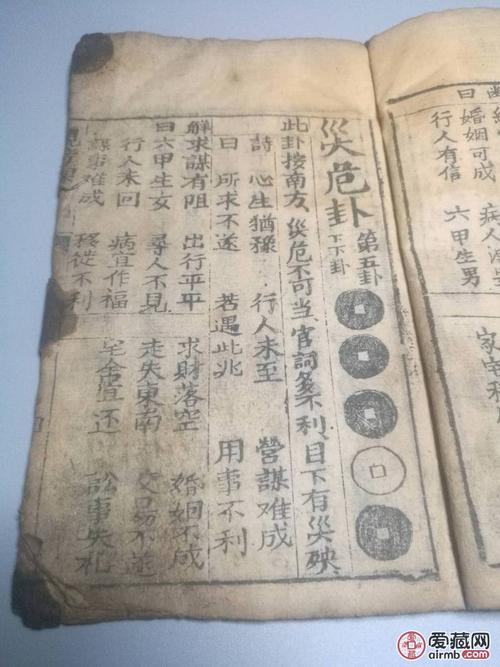 婚姻可成 六甲生男
曰
行人有信
家宅
災危卦 第五卦
下下卦
此卦按南方、災危不可当、官詞不利、目下有災殃
詩 心生猶豫 行人未至 營謀难成
曰 所求不遂 若遇此兆 用事不利
解求謀有阻 出行平平 求財落空 婚姻不成
曰六甲生女 尋人不見 走失東南 交易不遂
行人未回 病宜作福 宅舍宜还 訟事失札
事难成 移徙不利
爱藏网
airmb.com